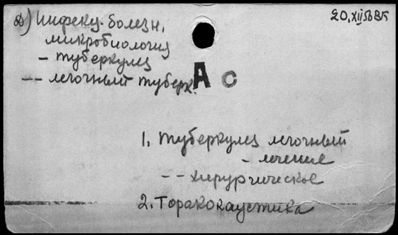 а) Инфекц. болезн,
20.XII 56 ВБ
микробиология
- туберкулез
-- легочный туберк.
А с
1. Туберкулез легочный
- лечение
-- хирургическое
2. Торакокаустика